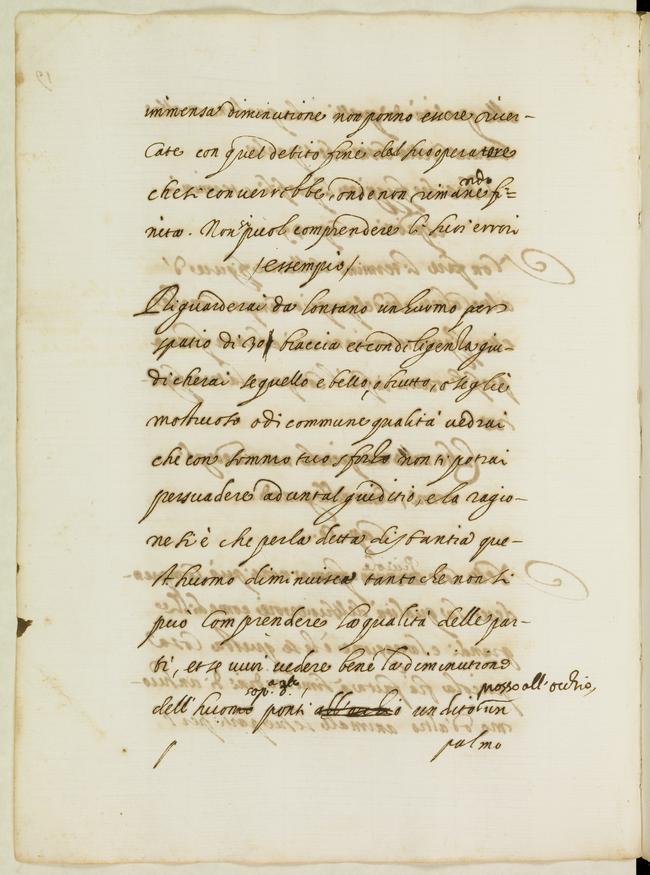 immensa diminutione non ponno essere ricer-
cate con quel debito fine dal suo operatore
che si converrebbe, onde non rimanendo fi=
nite. Non si puol comprendere li suoi errori
/essempio/
Riguarderai da lontano un huomo per
spatio di 30 braccia et con diligenza giu-
dicherai se quello e bello, o brutto, o se gli è
mostruoso o di commune qualità vedrai
che con sommo tuo sforzo non ti potrai
persuadere ad un tal giuditio, e la ragio-
ne si è che per la detta distantia que-
st huomo diminuisca tanto che non si
può comprendere la qualità delle par-
ti, et se vuoi vedere bene la diminutione
dell'huomo ponti un dito un
posto all'occhio,
palmo